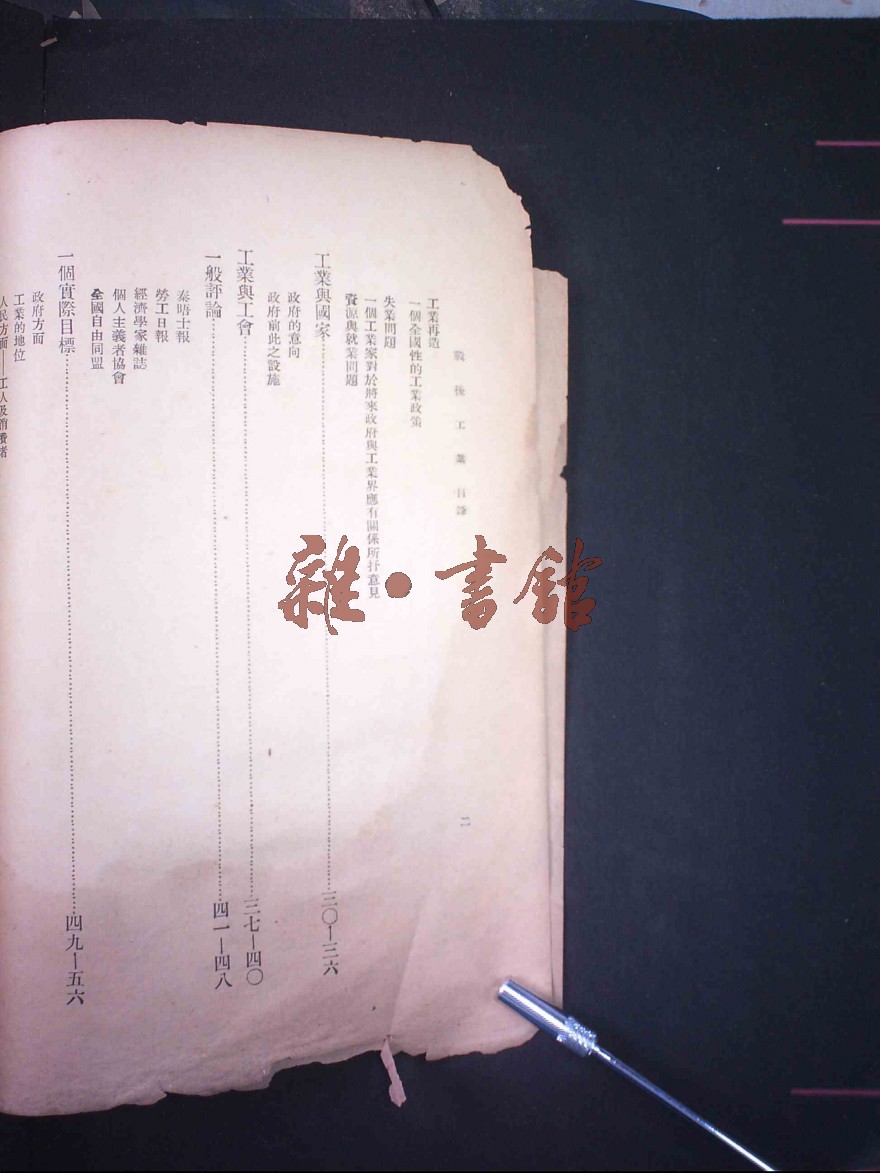 戰後工業目錄
二
工業再造
一個全國性的工業政策
失業問題
一個工業家對於將來政府與工業界應有關係所抒意見
資源與就業問題
工業與國家……三〇—三六
政府的意向
政府前此之設施
工業與工會……三七—四〇
一般評論……四一—四八
泰晤士報
勞工日報
經濟學家雜誌
個人主義者協會
全國自由同盟
一個實際目標……四九—五六
政府方面
工業的地位
人民方面——工人及消費者
雜·書館